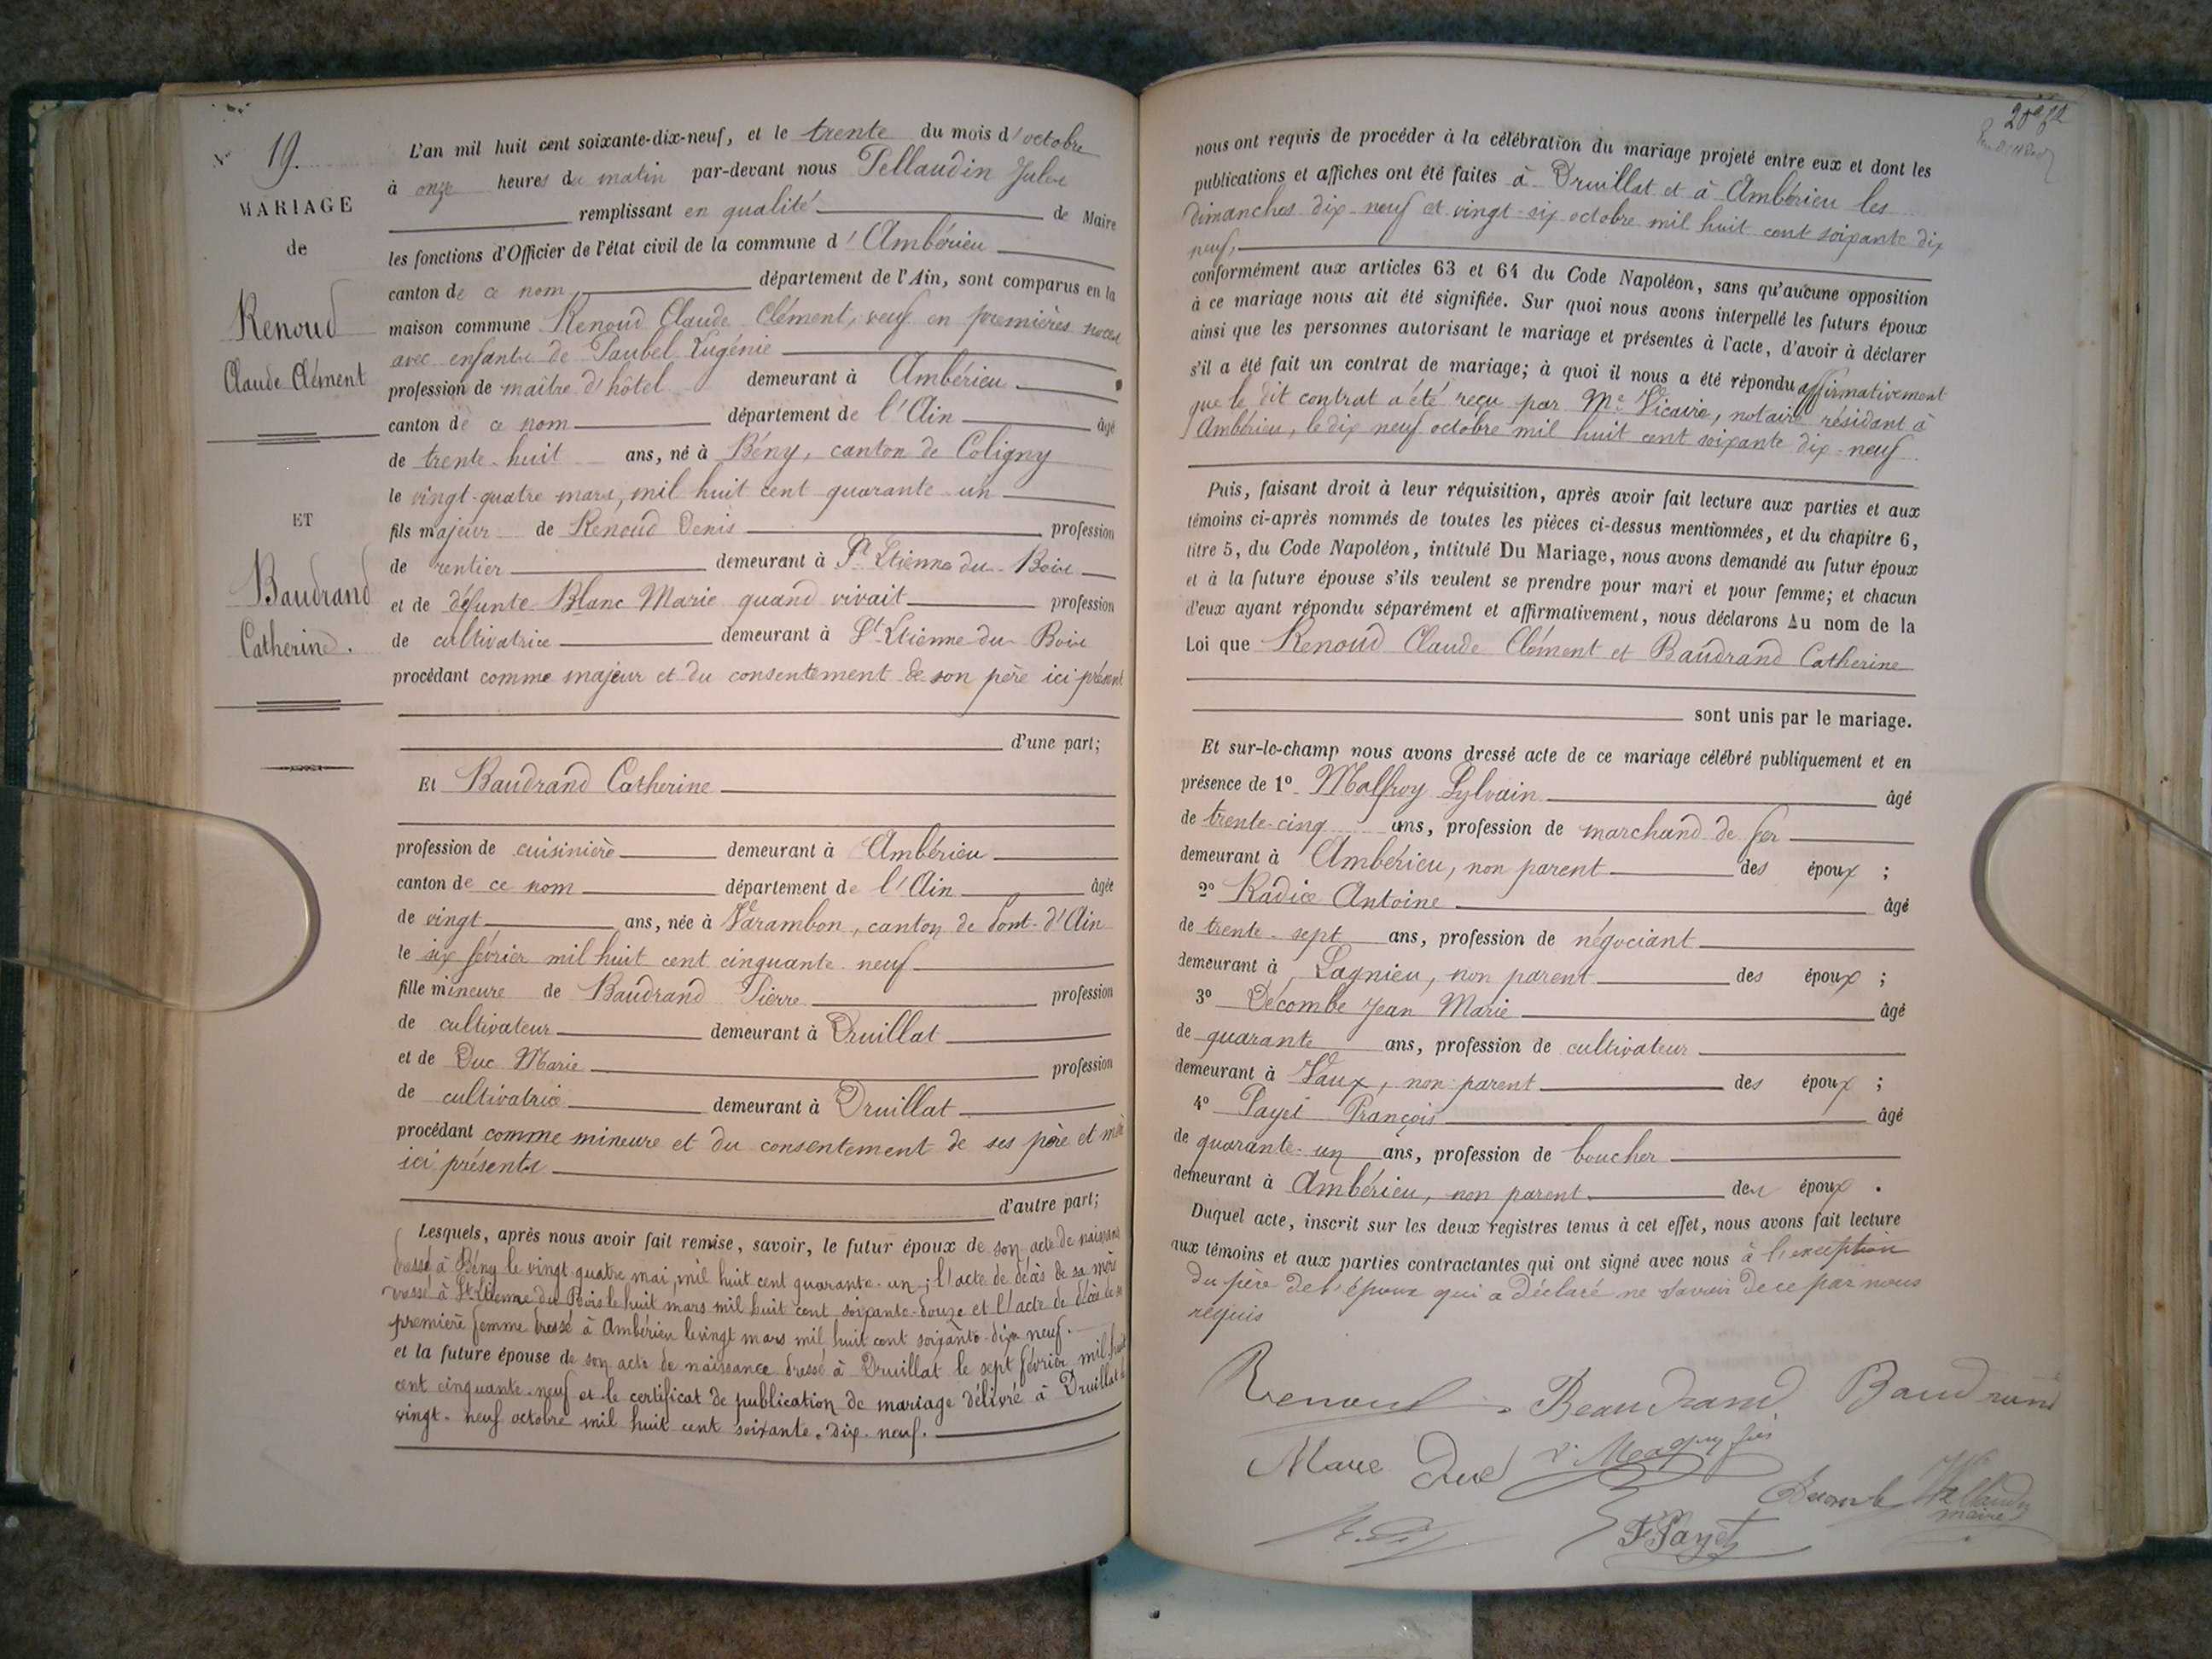 No 19.
MARIAGE
de
Renoud
Claude Clément
ET
Baudrand
Catherine.
L'an mil huit cent soixante-dix-neuf, et le trente du mois d'octobre
à onze heures du matin par-devant nous Pellaudin Jules
remplissant en qualité de Maire
les fonctions d'Officier de l'état civil de la commune d'Ambérieu
canton de ce nom, département de l'Ain, sont comparus en la
maison commune Renoud Claude Clément, veuf en premières noces
avec enfants de Paubel Eugénie
profession de maître d'hôtel demeurant à Ambérieu
canton de ce nom département de l'Ain âgé
de trente-huit ans, né à Bény, canton de Coligny
le vingt-quatre mars, mil huit cent quarante-un
fils majeur de Renoud Denis profession
de rentier demeurant à St Etienne du Bois
et de défunte Blanc Marie quand vivait profession
de cultivatrice demeurant à St Etienne du Bois
procédant comme majeur et du consentement de son père ici présent
d'une part;
Et Baudrand Catherine
profession de cuisinière demeurant à Ambérieu
canton de ce nom département de l'Ain âgée
de vingt ans, née à Varambon, canton de Pont-d'Ain
le six février mil huit cent cinquante-neuf
fille mineure de Baudrand Pierre profession
de cultivateur demeurant à Druillat
et de Duc Marie profession
de cultivatrice demeurant à Druillat
procédant comme mineure et du consentement de ses père et mère
ici présents
d'autre part;
Lesquels, après nous avoir fait remise, savoir, le futur époux de son acte de naissance
dressé à Bény le vingt quatre mai, mil huit cent quarante-un; l'acte de décès de sa mère
dressé à St Etienne du Bois le huit mars mil huit cent soixante-douze et l'acte de décès de sa
première femme dressé à Ambérieu le vingt mars mil huit cent soixante-dix neuf.
et la future épouse de son acte de naissance dressé à Druillat le sept février mil huit
cent cinquante-neuf et le certificat de publication de mariage délivré à Druillat le
vingt-neuf octobre mil huit cent soixante-dix-neuf.
nous ont requis de procéder à la célébration du mariage projeté entre eux et dont les
publications et affiches ont été faites à Druillat et à Ambérieu les
dimanches dix-neuf et vingt-six octobre mil huit cent soixante dix
neuf,
conformément aux articles 63 et 64 du Code Napoléon, sans qu'aucune opposition
à ce mariage nous ait été signifiée. Sur quoi nous avons interpellé les futurs époux
ainsi que les personnes autorisant le mariage et présentes à l'acte, d'avoir à déclarer
s'il a été fait un contrat de mariage; à quoi il nous a été répondu affirmativement
que le dit contrat a été reçu par Me Vicaire, notaire résidant à
Ambérieu, le dix neuf octobre mil huit cent soixante dix-neuf
Puis, faisant droit à leur réquisition, après avoir fait lecture aux parties et aux
témoins ci-après nommés de toutes les pièces ci-dessus mentionnées, et du chapitre 6,
titre 5, du Code Napoléon, intitulé Du Mariage, nous avons demandé au futur époux
et à la future épouse s'ils veulent se prendre pour mari et pour femme; et chacun
d'eux ayant répondu séparément et affirmativement, nous déclarons Au nom de la
Loi que Renoud Claude Clément et Baudrand Catherine
sont unis par le mariage.
Et sur-le-champ nous avons dressé acte de ce mariage célébré publiquement et en
présence de 1o Malfroy Sylvain âgé
de trente-cinq ans, profession de marchand de fer
demeurant à Ambérieu, non parent des époux ;
2o Radice Antoine âgé
de trente-sept ans, profession de négociant
demeurant à Lagnieu, non parent des époux ;
3o Décombe Jean Marie âgé
de quarante ans, profession de cultivateur
demeurant à Vaux, non parent des époux ;
4o Payet François âgé
de quarante-un ans, profession de boucher
demeurant à Ambérieu, non parent des époux .
Duquel acte, inscrit sur les deux registres tenus à cet effet, nous avons fait lecture
aux témoins et aux parties contractantes qui ont signé avec nous à l'exception
du père de l'époux qui a déclaré ne savoir de ce par nous
requis
Renoud Beaudrand Baudrand
Marie Duc
Decombe Pellaudin
maire
F. Payet